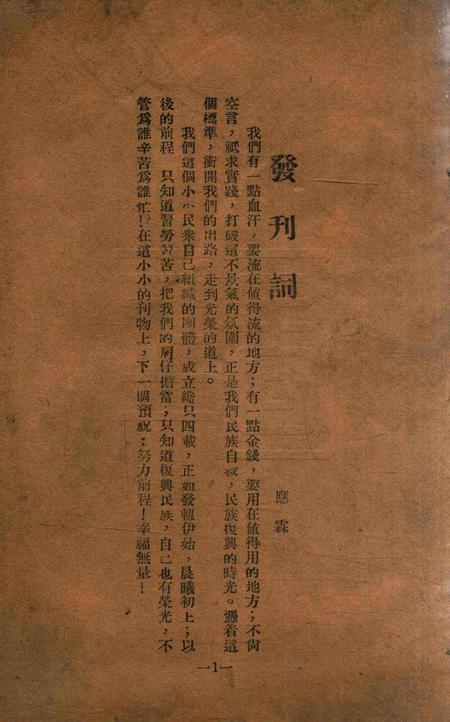 發刊詞
應霖
我們有一點血汗，要流在値得流的地方；有一點金錢，要用在値得用的地方；不尙
空言，祇求實踐，打破這不景氣的氛圍，正是我們民族自救，民族復興的時光。憑着這
個標準，衝開我們的出路，走到光榮的道上。
我們這個小小民衆自己組織的團體，成立纔只四載，正如發軔伊始，晨曦初上；以
後的前程　只知道習勞習苦，把我們的肩仔擔當；只知道復興民族，自己也有榮光，不
管爲誰辛苦爲誰忙！在這小小的刊物上，下一個預祝：努力前程！幸福無量！
—1—